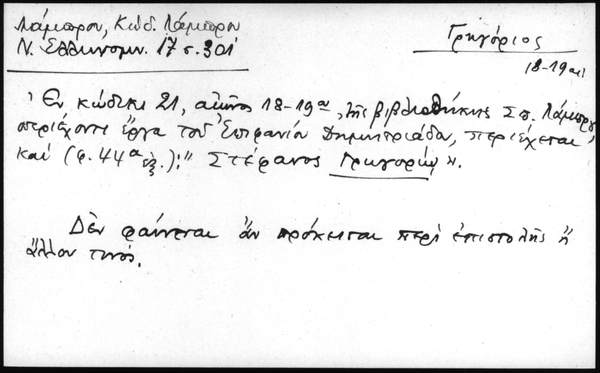 Λάμπρου, Κώδ. Λάμπρου
Ν. Ελληνομν. 17 σ. 301
Γρηγόριος
18-19 αι
Ἐν κώδικι 21, αἰῶνος 18-19ου, τῆς βιβλιοθήκης Σπ. Λάμπρου
περιέχοντι ἔργα τοῦ Ἐπιφανίου Δημητριάδου, περιέχεται
καὶ (φ. 44α ἑξ.): " Στέφανος Γρηγορίῳ ".
Δὲν φαίνεται ἂν πρόκειται περὶ ἐπιστολῆς ἢ
ἄλλου τινός.